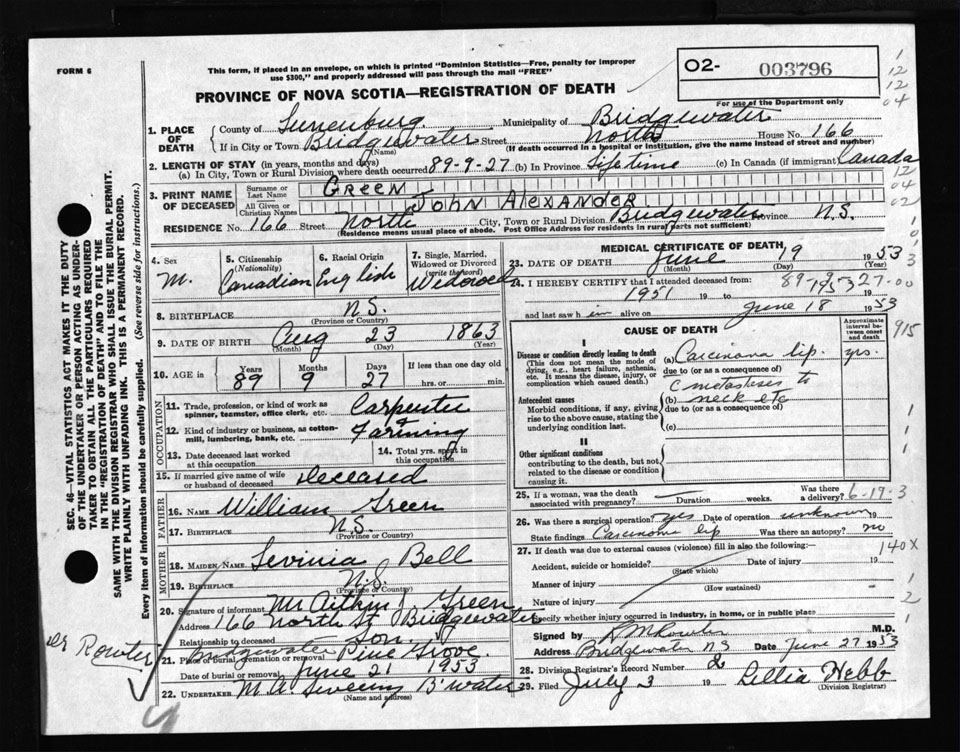 FORM 6
This form, if placed in an envelope, on which is printed "Dominion Statistics—Free, penalty for improper
use $300," and properly addressed will pass through the mail "FREE"
PROVINCE OF NOVA SCOTIA—REGISTRATION OF DEATH
02- 003796
For use of the Department only
1
12
12
04
1. PLACE OF DEATH
County of Lunenburg Municipality of Bridgewater
If in City or Town Bridgewater Street North House No. 166
(Name) (If death occurred in a hospital or institution, give the name instead of street and number)
2. LENGTH OF STAY (in years, months and days)
(a) In City, Town or Rural Division where death occurred 89-9-27 (b) In Province Lifetime (c) In Canada (if immigrant) Canada
12
04
02
3. PRINT NAME OF DECEASED
Surname or Last Name GREEN
All Given or Christian Names JOHN ALEXANDER
RESIDENCE No. 166 Street North City, Town or Rural Division Bridgewater Province N.S.
(Residence means usual place of abode. Post Office Address for residents in rural parts not sufficient)
4. Sex M.
5. Citizenship (Nationality) Canadian
6. Racial Origin English
7. Single, Married, Widowed or Divorced (write the word) Widowed
8. BIRTHPLACE N.S.
(Province or Country)
9. DATE OF BIRTH Aug 23 1863
(Month) (Day) (Year)
10. AGE in Years 89 Months 9 Days 27 If less than one day old
hrs. or min.
OCCUPATION
11. Trade, profession, or kind of work as spinner, teamster, office clerk, etc. Carpenter
12. Kind of industry or business, as cotton-mill, lumbering, bank, etc. + Farming
13. Date deceased last worked at this occupation
14. Total yrs. spent in this occupation
15. If married give name of wife or husband of deceased Deceased
FATHER
16. NAME William Green
17. BIRTHPLACE N.S.
(Province or Country)
MOTHER
18. MAIDEN NAME Levinia Bell
19. BIRTHPLACE N.S.
(Province or Country)
20. Signature of informant Mr Aitken J Green
Address 166 North St Bridgewater
Relationship to deceased Son.
21. Place of burial, cremation or removal Bridgewater Pine Grove
Date of burial or removal June 21 1953
22. UNDERTAKER M A Sweeny B'water
(Name and address)
MEDICAL CERTIFICATE OF DEATH
23. DATE OF DEATH June 19 1953
(Month) (Day) (Year)
24. I HEREBY CERTIFY that I attended deceased from: 89-9-27-00
1951 19 to 1953
and last saw him alive on June 18 1953
CAUSE OF DEATH
Approximate interval between onset and death
915
I
Disease or condition directly leading to death
(This does not mean the mode of dying, e.g., heart failure, asthenia, etc. It means the disease, injury, or complication which caused death.)
(a) Carcinoma lip. yrs.
due to (or as consequence of)
c metastases to
Antecedent causes
Morbid conditions, if any, giving rise to the above cause, stating the underlying condition last.
(b) neck etc
due to (or as consequence of)
(c)
II
Other significant conditions
contributing to the death, but not related to the disease or condition causing it.
25. If a woman, was the death associated with pregnancy? Duration weeks. Was there a delivery? 6-19-3
26. Was there a surgical operation? yes Date of operation unknown 19
State findings Carcinoma lip Was there an autopsy? no
27. If death was due to external causes (violence) fill in also the following:— 140X
Accident, suicide or homicide? Date of injury 19
(State which)
Manner of injury
(How sustained)
Nature of injury 2
Specify whether injury occurred in industry, in home, or in public place
Signed by M.D.
Address Bridgewater N S Date June 27 1953
28. Division Registrar's Record Number
29. Filed July 3 19 Lellia Webb
(Division Registrar)
SEC. 46—VITAL STATISTICS ACT MAKES IT THE DUTY
OF THE UNDERTAKER OR PERSON ACTING AS UNDER-
TAKER TO OBTAIN ALL THE PARTICULARS REQUIRED
IN THE "REGISTRATION OF DEATH" AND TO FILE THE
SAME WITH THE DIVISION REGISTRAR WHO SHALL ISSUE THE BURIAL PERMIT.
WRITE PLAINLY WITH UNFADING INK. THIS IS A PERMANENT RECORD.
Every item of information should be carefully supplied. (See reverse side for instructions.)